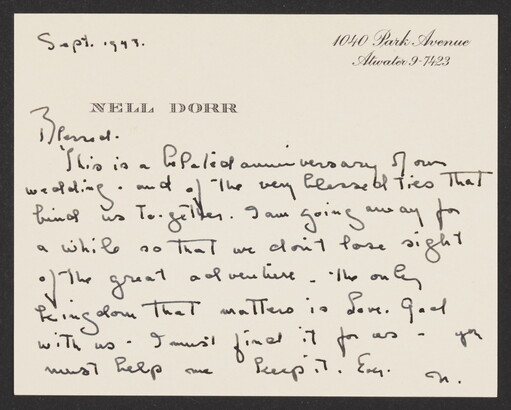 Sept. 1943.
1040 Park Avenue
Atwater 9-7423
NELL DORR
Blessed.
This is a belated anniversary of our
wedding. and of the very blessed ties that
bind us to-gether. I am going away for
a while so that we don't lose sight
of the great adventure - The only
kingdom that matters is Love. God
with us - I must find it for us - you
must help me keep it.
N.